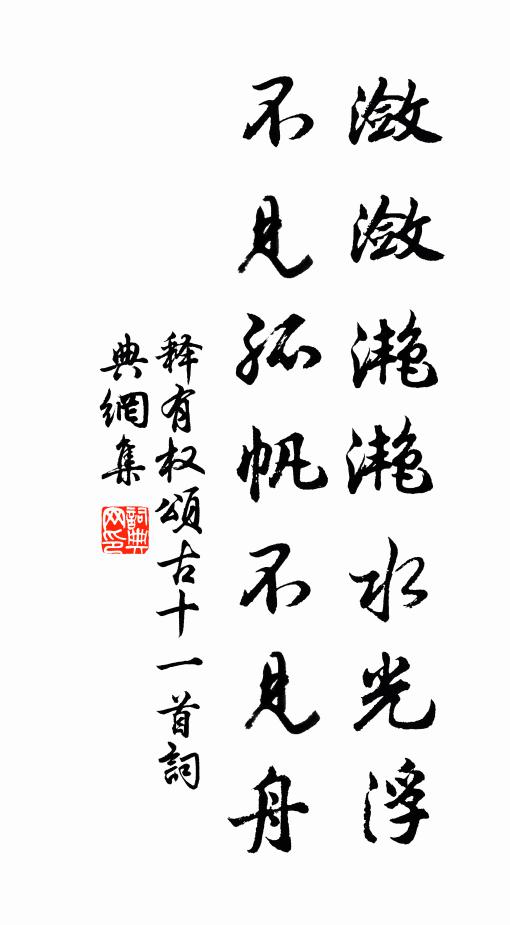 潋潋滟滟水光浮
不见孤帆不见舟
释有权颂古十一首詞
典網集
詞典
网印